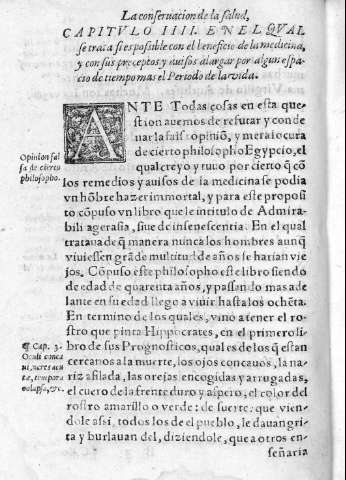 La conseruacion de la salud,
CAPITVLO IIII. EN EL QVAL
se trata si es possible con el beneficio de la medicina,
y con sus preceptos y auisos alargar por algun espa
cio de tiempo mas el Periodo de la vida.
ANTE Todas cosas en esta que
stion auemos de refutar y conde
nar la falsa opiniõ, y mera locura
de cierto philosopho Egypcio, el
qual creyo y tuuo por cierto q̃ cõ
los remedios y auisos de la medicina se podia
vn hõbre hazer immortal, y para este proposi
to cõpuso vn libro que le intitulo de Admira-
bili agerasia, siue de insenescentia. En el qual
trataua de q̃ manera nunca los hombres aunq̃
viuiessen grãde multitud de años se harian vie
jos. Cõpuso este philosopho este libro siendo
de edad de quarenta años, y passando mas ade
lante en su edad llego a viuir hasta los ochẽta.
En termino de los quales, vino a tener el ro-
stro que pinta Hippocrates, en el primero li-
bro de sus Prognosticos, qual es de los q̃ estan
cercanos a la muerte, los ojos concauos, la na-
riz afilada, las orejas encogidas y arrugadas,
el cuero de la frente duro y aspero, el color del
rostro amarillo o verde: de suerte, que vien-
dole assi, todos los de el pueblo, le dauan gri-
ta y burlauan del, diziendole, que a otros en-
señaria
Opinion fal
sa de cierto
philosopho.
Cap. 3.
Oculi conca
ui, nares acu
tæ, tempora
colapsa, &c.